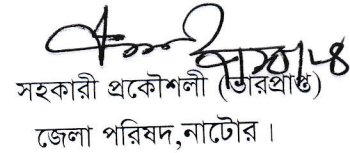 সহকারী প্রকৌশলী (ভারপ্রাপ্ত)
জেলা পরিষদ,নাটোর।